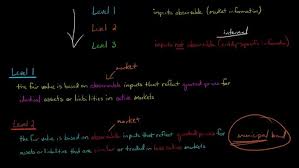 Level 1 inputs observable (market information)
Level 2 internal
Level 3 inputs not observable (entity-specific information)
Level 1 market
the fair value is based on observable inputs that reflect quoted prices for
identical assets or liabilities in active markets
Level 2 market
the fair value is based on observable inputs that reflect quoted prices for municipal bond
assets or liabilities that are similar or traded in less active markets